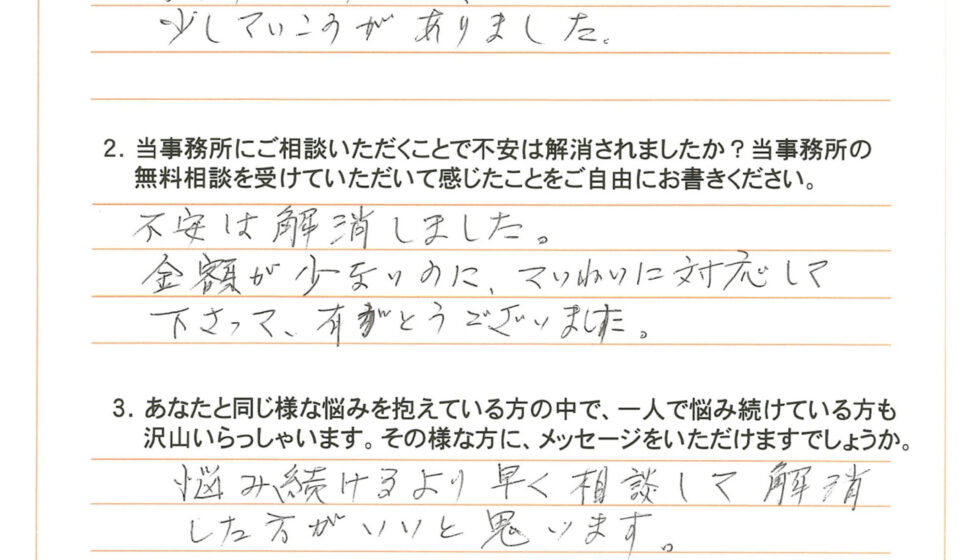 少していこうがありました。
2. 当事務所にご相談いただくことで不安は解消されましたか？当事務所の
無料相談を受けていただいて感じたことをご自由にお書きください。
不安は解消しました。
金額が少ないのに、ていねいに対応して
下さって、有がとうございました。
3. あなたと同じ様な悩みを抱えている方の中で、一人で悩み続けている方も
沢山いらっしゃいます。その様な方に、メッセージをいただけますでしょうか。
悩み続けるより早く相談して解消
した方がいいと思います。